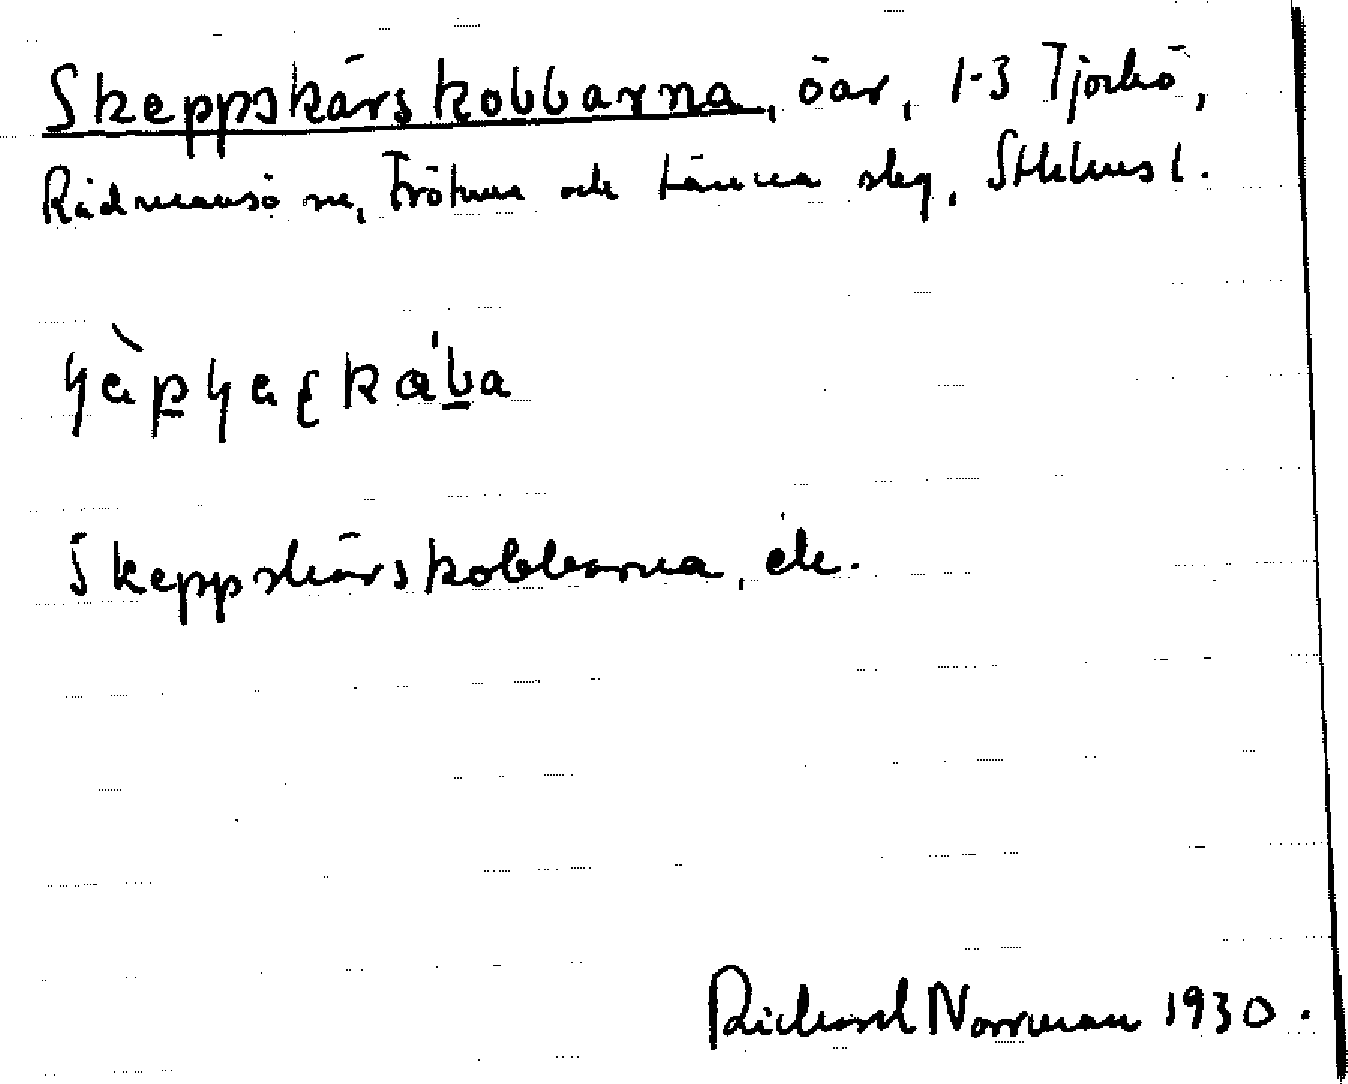 Skeppskärskobbarna, öar, 1-3 Tjockö,
Rådmansö sn, Frötuna och Länna skg, Sthlms l.
Skeppskärskobbarna, ek.
Rickard Norrman 1930.